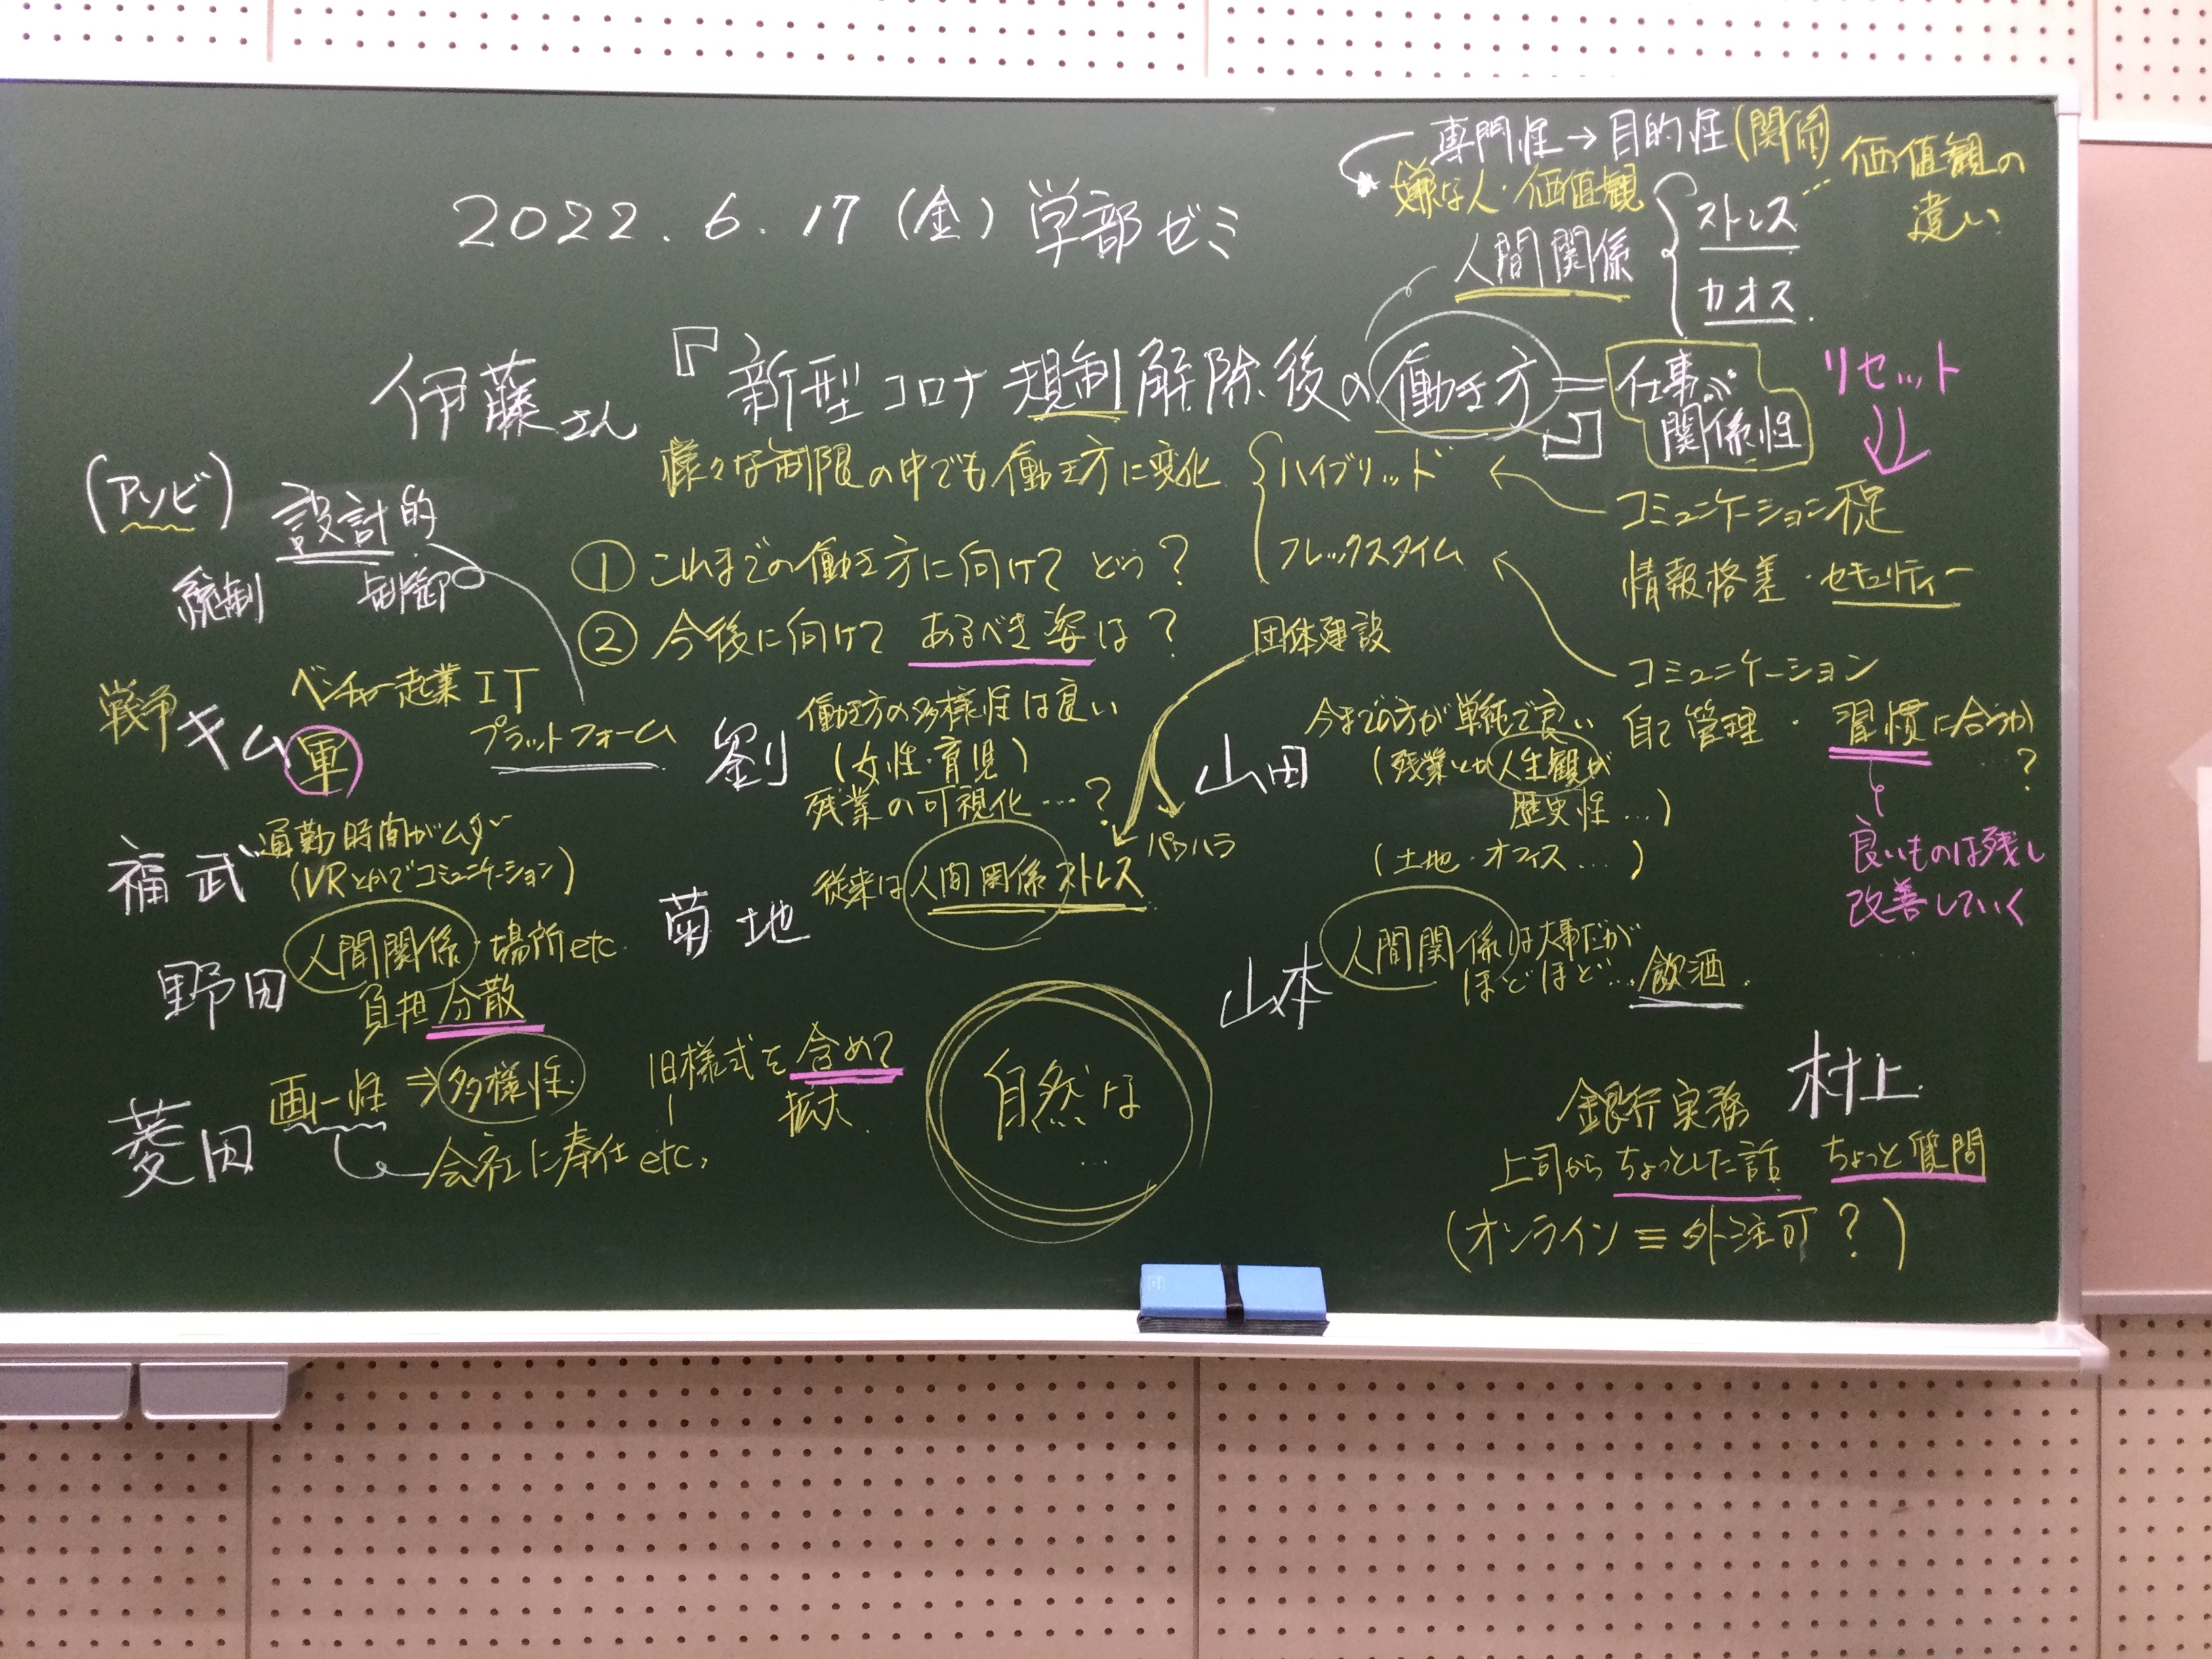 専門性→目的性(関係)
嫌な人・価値観
価値観の
違い
ストレス
カオス
人間関係
2022.6.17(金)学部ゼミ
伊藤さん『新型コロナ規制解除後の働き方』=仕事が
関係性
リセット
様々な制限の中でも働き方に変化
ハイブリッド
フレックスタイム
コミュニケーション不足
情報格差・セキュリティー
コミュニケーション
自己管理・習慣に合うか
…?
良いものは残し
改善していく
(アソビ)
設計的
統制 制御
①これまでの働き方に向けてどう?
②今後に向けてあるべき姿は?
団体建設
戦争
キム
ベンチャー起業IT
軍
プラットフォーム
劉
働き方の多様性は良い
(女性・育児)
残業の可視化…?
山田
今までの方が単純で良い
(残業とか人生観が
歴史性…)
(土地・オフィス…)
福武
通勤時間がムダ
(VRとかでコミュニケーション)
菊地
従来は人間関係ストレス
パワハラ
野田
人間関係・場所etc.
負担分散
山本
人間関係は大事だが
ほどほど…飲酒.
菱田
画一性⇒多様性.
会社に奉仕etc,
旧様式を含めて
拡大.
自然な
…
村上.
金銀行実務
上司からちょっとした話 ちょっと質問
(オンライン≡外注可?)